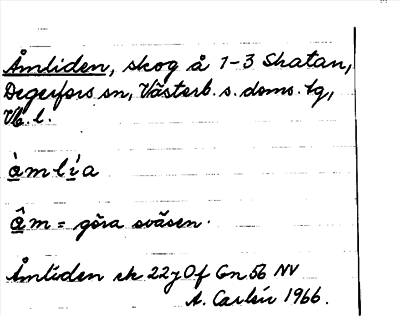 Åmliden, skog å 1-3 Skatan,
Degerfors sn, Västerb. s. doms. tg,
Vb. l.
àmlìa
âm = göra oväsen.
Åmliden ek 22 j 0f Gn 56 NV
A. Carlén 1966.